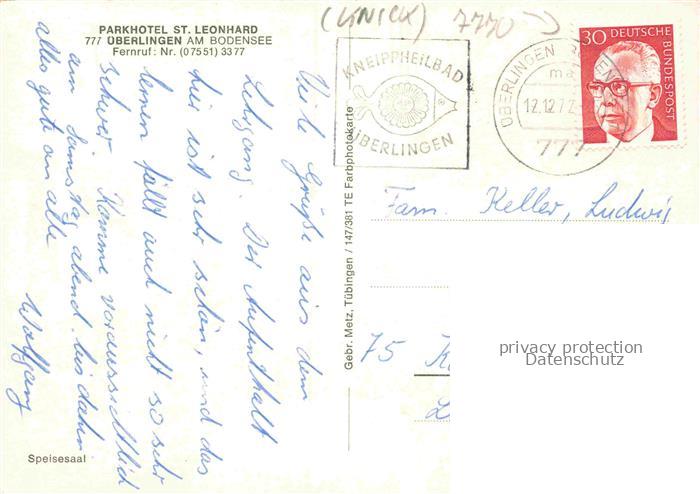 PARKHOTEL ST. LEONHARD
777 ÜBERLINGEN AM BODENSEE
Fernruf: Nr. (07551) 3377
(KNICK) 7770
KNEIPPHEILBAD
ÜBERLINGEN
ÜBERLINGEN
12.12.72
777
30 DEUTSCHE BUNDESPOST
Viele Grüße aus dem
Lehrgang. Der Aufenthalt
hier ist sehr schön, und das
lernen fällt auch nicht so sehr
schwer. Komme voraussichtlich
am Samstag abend. bis dahin
alles gute an alle
Wolfgang
Gebr. Metz, Tübingen / 147/381 TE Farbphotokarte
Fam. Keller, Ludwig
75
privacy protection
Datenschutz
Speisesaal